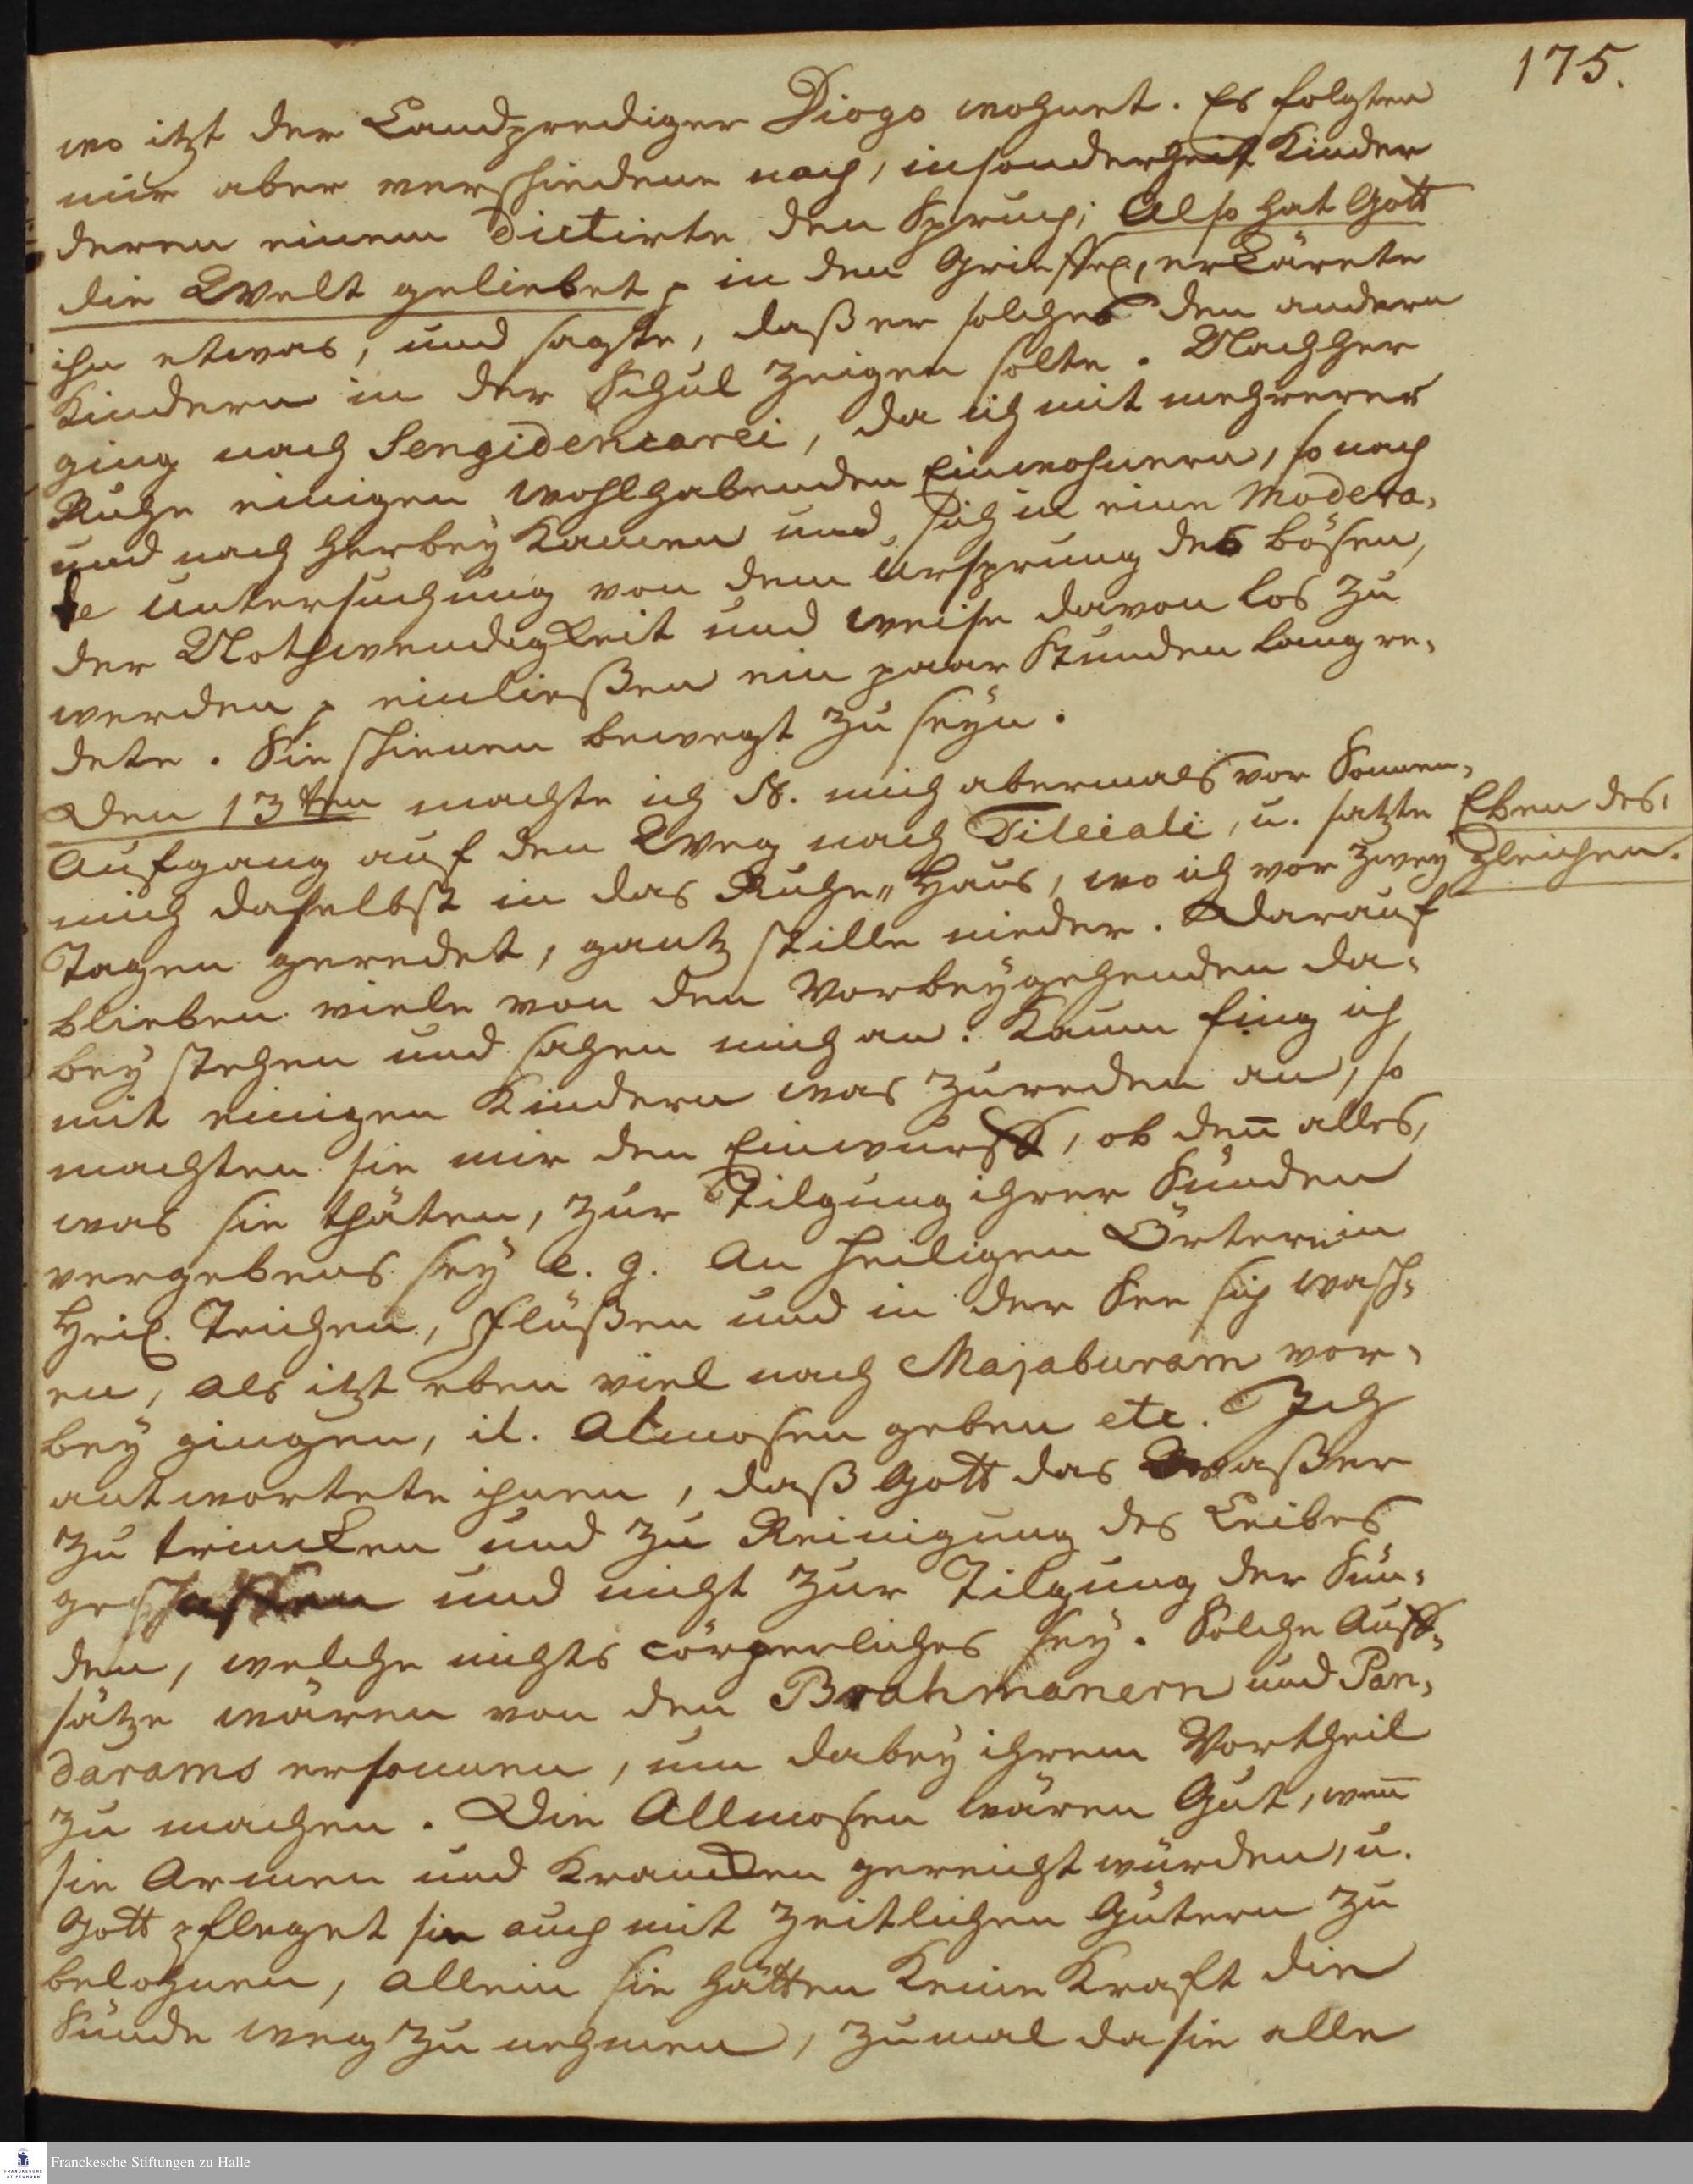 175.
wo itzt der Landprediger Diogo wohnet. Es folgten
mir aber verschiedene nach, insonderheit Kinder
deren einem dictirte den Spruch; Also hat Gott
die Welt geliebet p in den Grieffel, erklärete
ihn etwas, und sagte, daß er solches den andern
Kindern in der Schul zeigen solte. Nachher
ging nach Sengidencarei, da ich mit mehrerer
Ruhe einigen wohlhabenden Einwohnern, so nach
und nach herbey kamen und sich in eine Modera-
te Untersuchung von dem Ursprung des bösen,
der Nothwendigkeit und Weise davon los zu
werden p einließen ein paar Stunden lang re-
dete. Sie schienen bewegt zu seyn.
Den 13ten machte ich N. mich abermals vor Sonnen-
Aufgang auf den Weg nach Tileiali, u. satzte
Eben des-
gleichen.
mich daselbst in das Ruhe-Haus, wo ich vor zwey
Tagen geredet, gantz stille nieder. Darauf
blieben viele von den Vorbeygehenden da-
bey stehen und sahen mich an. Kaum fing ich
mit einigen Kindern was zureden an, so
machten sie mir den Einwurff, ob denn alles,
was sie thäten, zur Tilgung ihrer Sünden
vergebens sey e. g. An heiligen Örtern in
Heil. Teichen, Flüßen und in der See sich wasch-
en, als itzt eben viel nach Majaburam vor-
bey gingen, it. Almosen geben etc. Ich
antwortete ihnen, daß Gott das Waßer
zu trincken und zu Reinigung des Leibes
geschaffen und nicht zur Tilgung der Sün-
den, welche nichts cörperliches sey. Solche Auff-
sätze wären von den Brahmanern und Pan-
darams ersonnen, um dabey ihrem Vortheil
zu machen. Die Allmosen wären gut, wenn
sie Armen und Krancken gereicht würden, u.
Gott pfleget sie auch mit zeitlichen Gütern zu
belohnen, allein sie hätten keine Kraft die
Sünde weg zu nehmen, zumal da sie alle
Franckesche Stiftungen zu Halle